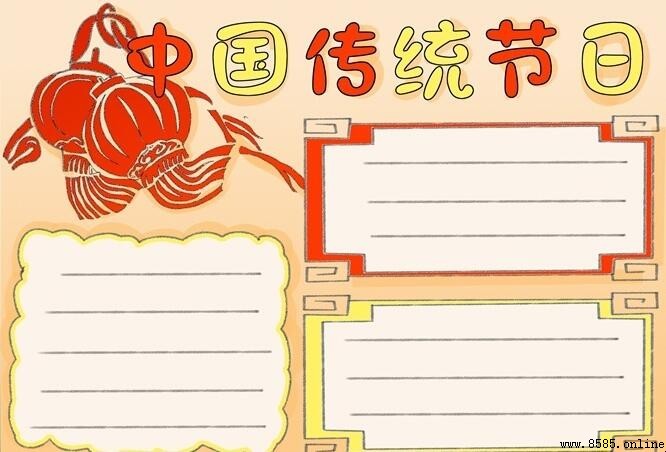 中国传统节日
www.8585.online